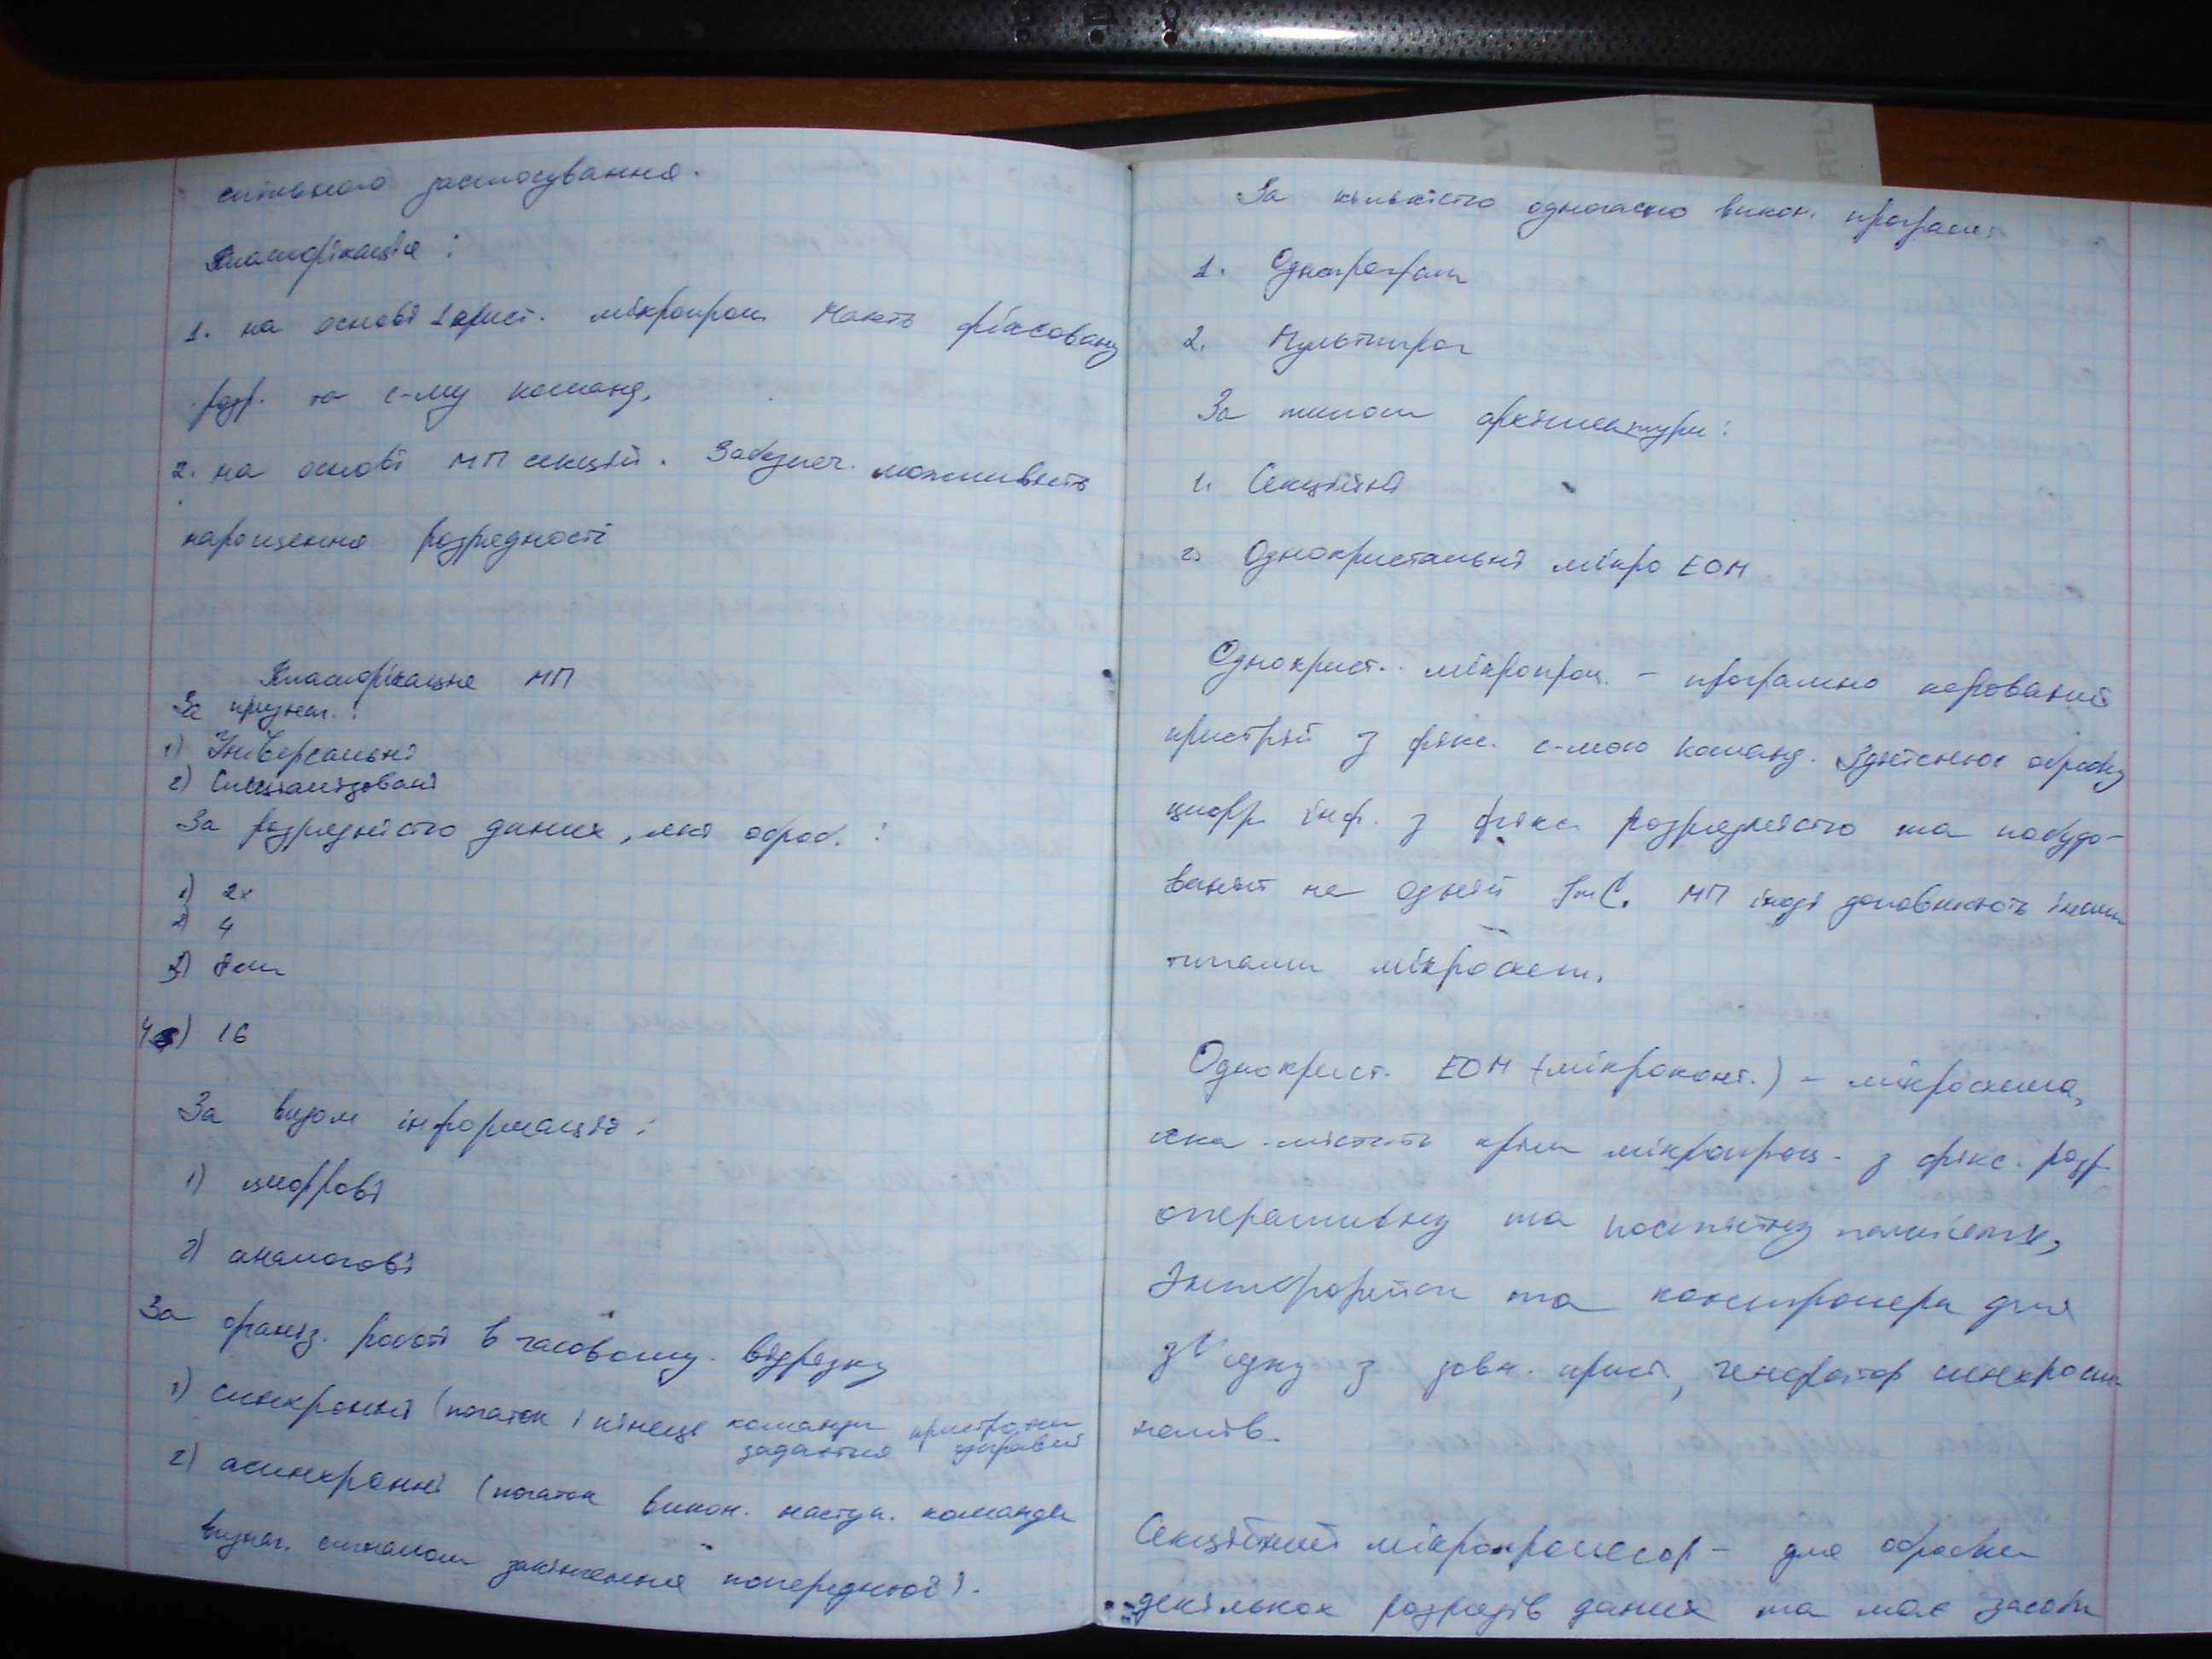 спільного застосування.
Класифікація :
1. на основі 1 крист. мікропроц. Мають фіксовану
розр. та с-му команд.
2. на основі МП секцій. Забезпеч. можливість
нарощення розрядності
Класифікація МП
За признач. :
1) Універсальні
2) Спеціалізовані
За розрядністю даних, які оброб. :
1) 2х
2) 4
3) 8ми
4) 16
За видом інформації :
1) цифрові
2) аналогові
За організ. роботі в часовому. відрізку
1) синхронні (початок і кінець команди пристроєм
задається управл
2) асинхронні (початок викон. наступ. команди
визнач. сигналом закінчення попередньої).
За кількістю одночасно викон. програм:
1. Однопрограм
2. Мультипрог
За типом архітектури :
1. Секційні
2. Однокристальні мікро ЕОМ
Однокрист. мікропроц. – програмно керований
пристрій з фікс. с-мою команд. Здійснює обробку
цифр інф. з фікс. розрядністю та побудо-
ваний на одній ІмС. МП іноді доповнюють іншим
типами мікросхем.
Однокрист. ЕОМ (мікроконт.) – мікросхема,
яка містить крім мікропроц. з фікс. розр.
оперативну та постійну пам'ять,
Інтерфейси та контролери для
зв'язку з зовн. прист., генератор синхросиг-
налів.
Секційний мікропроцесор – для обробки
декількох розрядів даних та має засоби